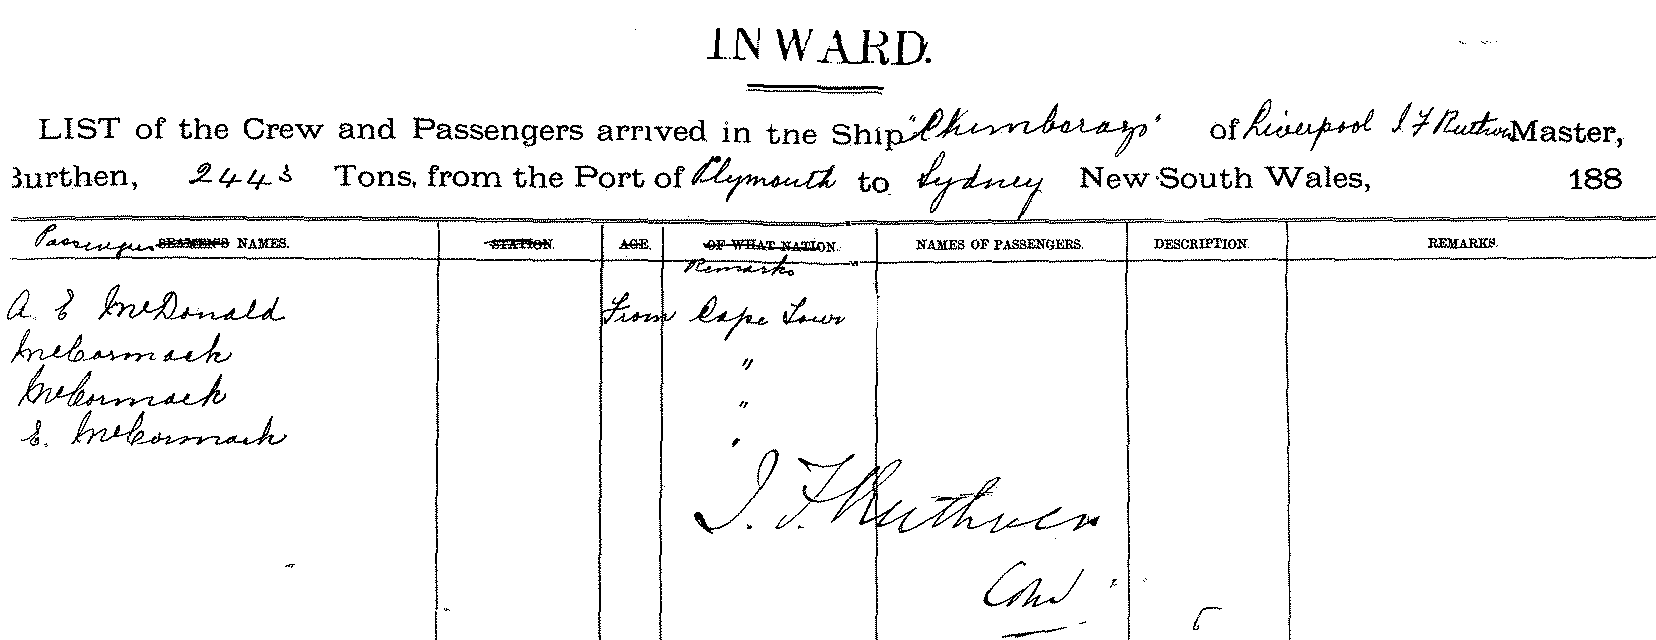 INWARD.
LIST of the Crew and Passengers arrived in the Ship "Chimborazo" of Liverpool J F Ruthven Master,
Burthen, 2443 Tons, from the Port of Plymouth to Sydney New South Wales, 188
Passengers SEAMEN'S NAMES. STATION. AGE. OF WHAT NATION. NAMES OF PASSENGERS. DESCRIPTION. REMARKS.
Remarks
A. E McDonald From Cape Town
McCormack "
McCormack "
E. McCormack "
J. F. Ruthven